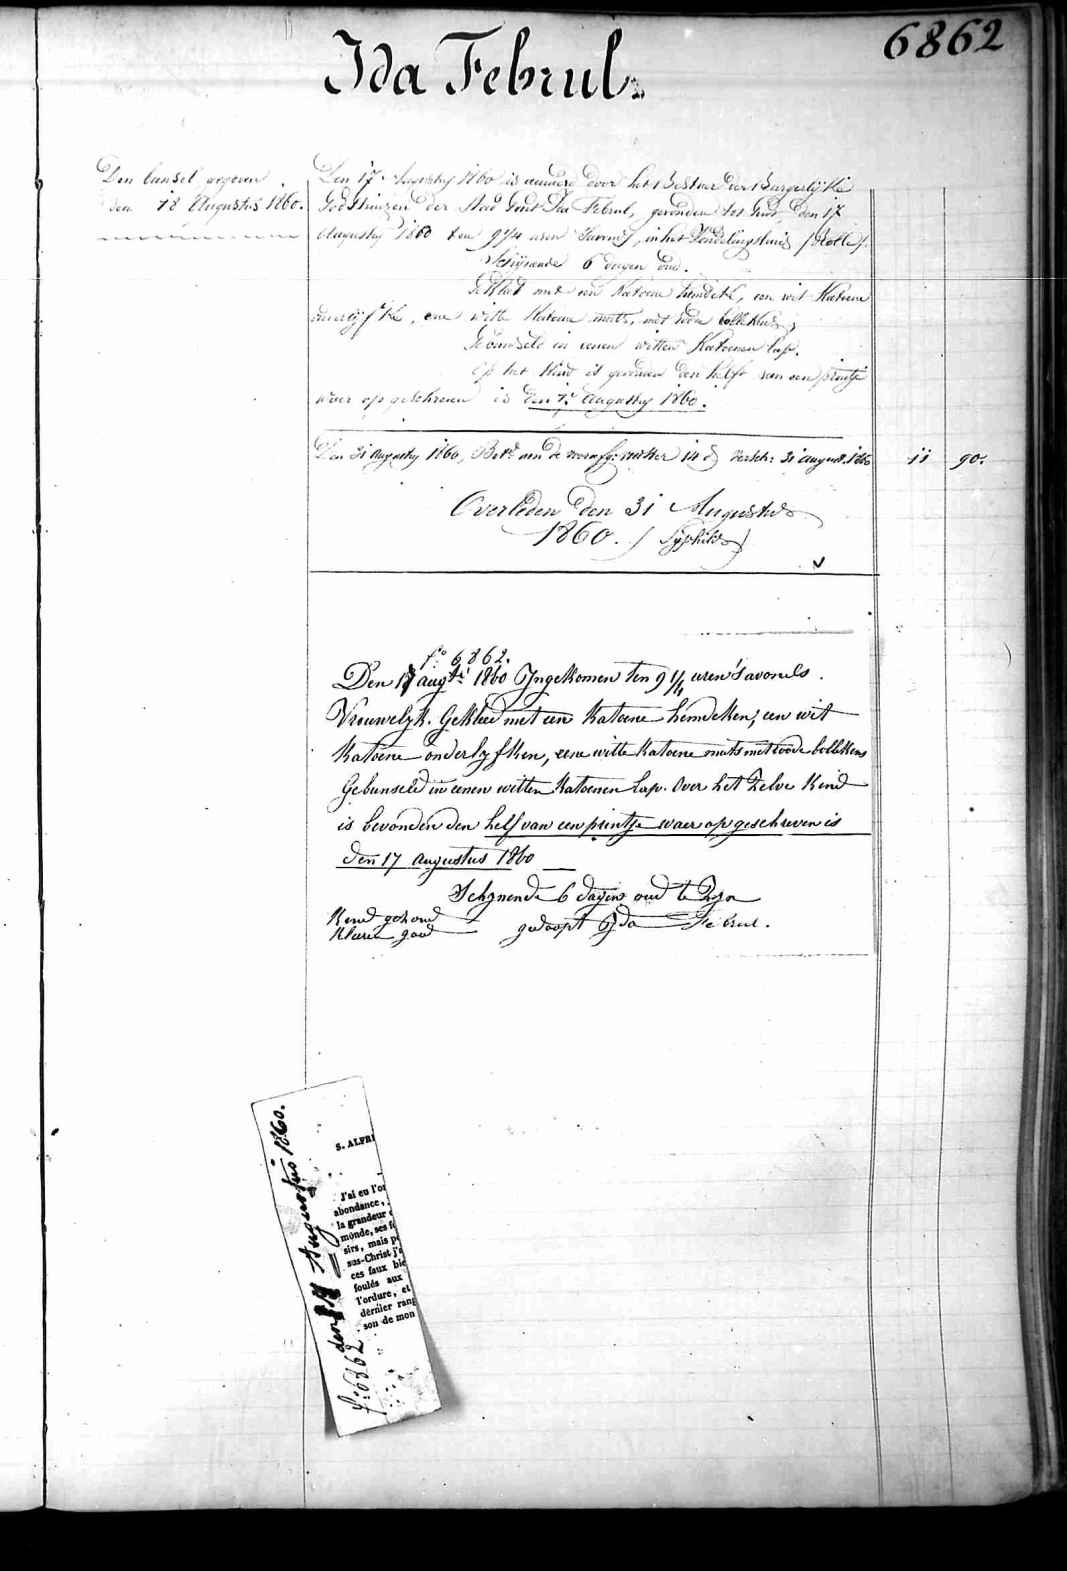 6862
Ida Febrül.
Den bunsel gegeven
den 18 Augustus 1860.
Den 17 Augusty 1860 is aenveerd door het Bestuer der Burgerlijke
Godshuizen der Stad Gent Ida Februl, gevonden tot Gend, den 17
Augusty 1860 ten 9 1/4 uren 's avonds, in het Vondelingshuis (Rolle).
Schijnende 6 dagen oud.
Gekleed met een Katoene hemdeke, een wit Katoene
onderlijfke, eene witte Katoene muts, met roode bollekens,
Gebunseld in eenen witten Katoenen lap.
Op het Kind is gevonden den helft van een printje
waer op geschreven is den 17 augusty 1860.
Den 31 Augusty 1860, Bet. aan de 14 d versch: 31 august. 1860 11 90.
Overleden den 31 Augustus
1860. (Syphilis)
f.o 6862.
Den 17 augti 1860 Ingekomen ten 9 1/4 uren 's avonds.
Vrouwelyk. Gekleed met een Katoene hemdeken, een wit
Katoene onderlyfken, eene witte Katoene muts met roode bollekens
Gebunseld in eenen witten Katoenen lap. Over het zelve Kind
is bevonden den helf van een printje waer op geschreven is
den 17 augustus 1860
Schynende 6 dagen oud te zyn
Kind gezond
Kleeren goed gedoopt Ida Februl.
f.o 6862 den 17 Augustus 1860.
S. ALFRI
J'ai eu l'or
abondance,
la grandeur
monde, ses f
sirs, mais p
sus-Christ j'
ces faux bie
foulés aux
l'ordure, et
dernier rang
son de mon